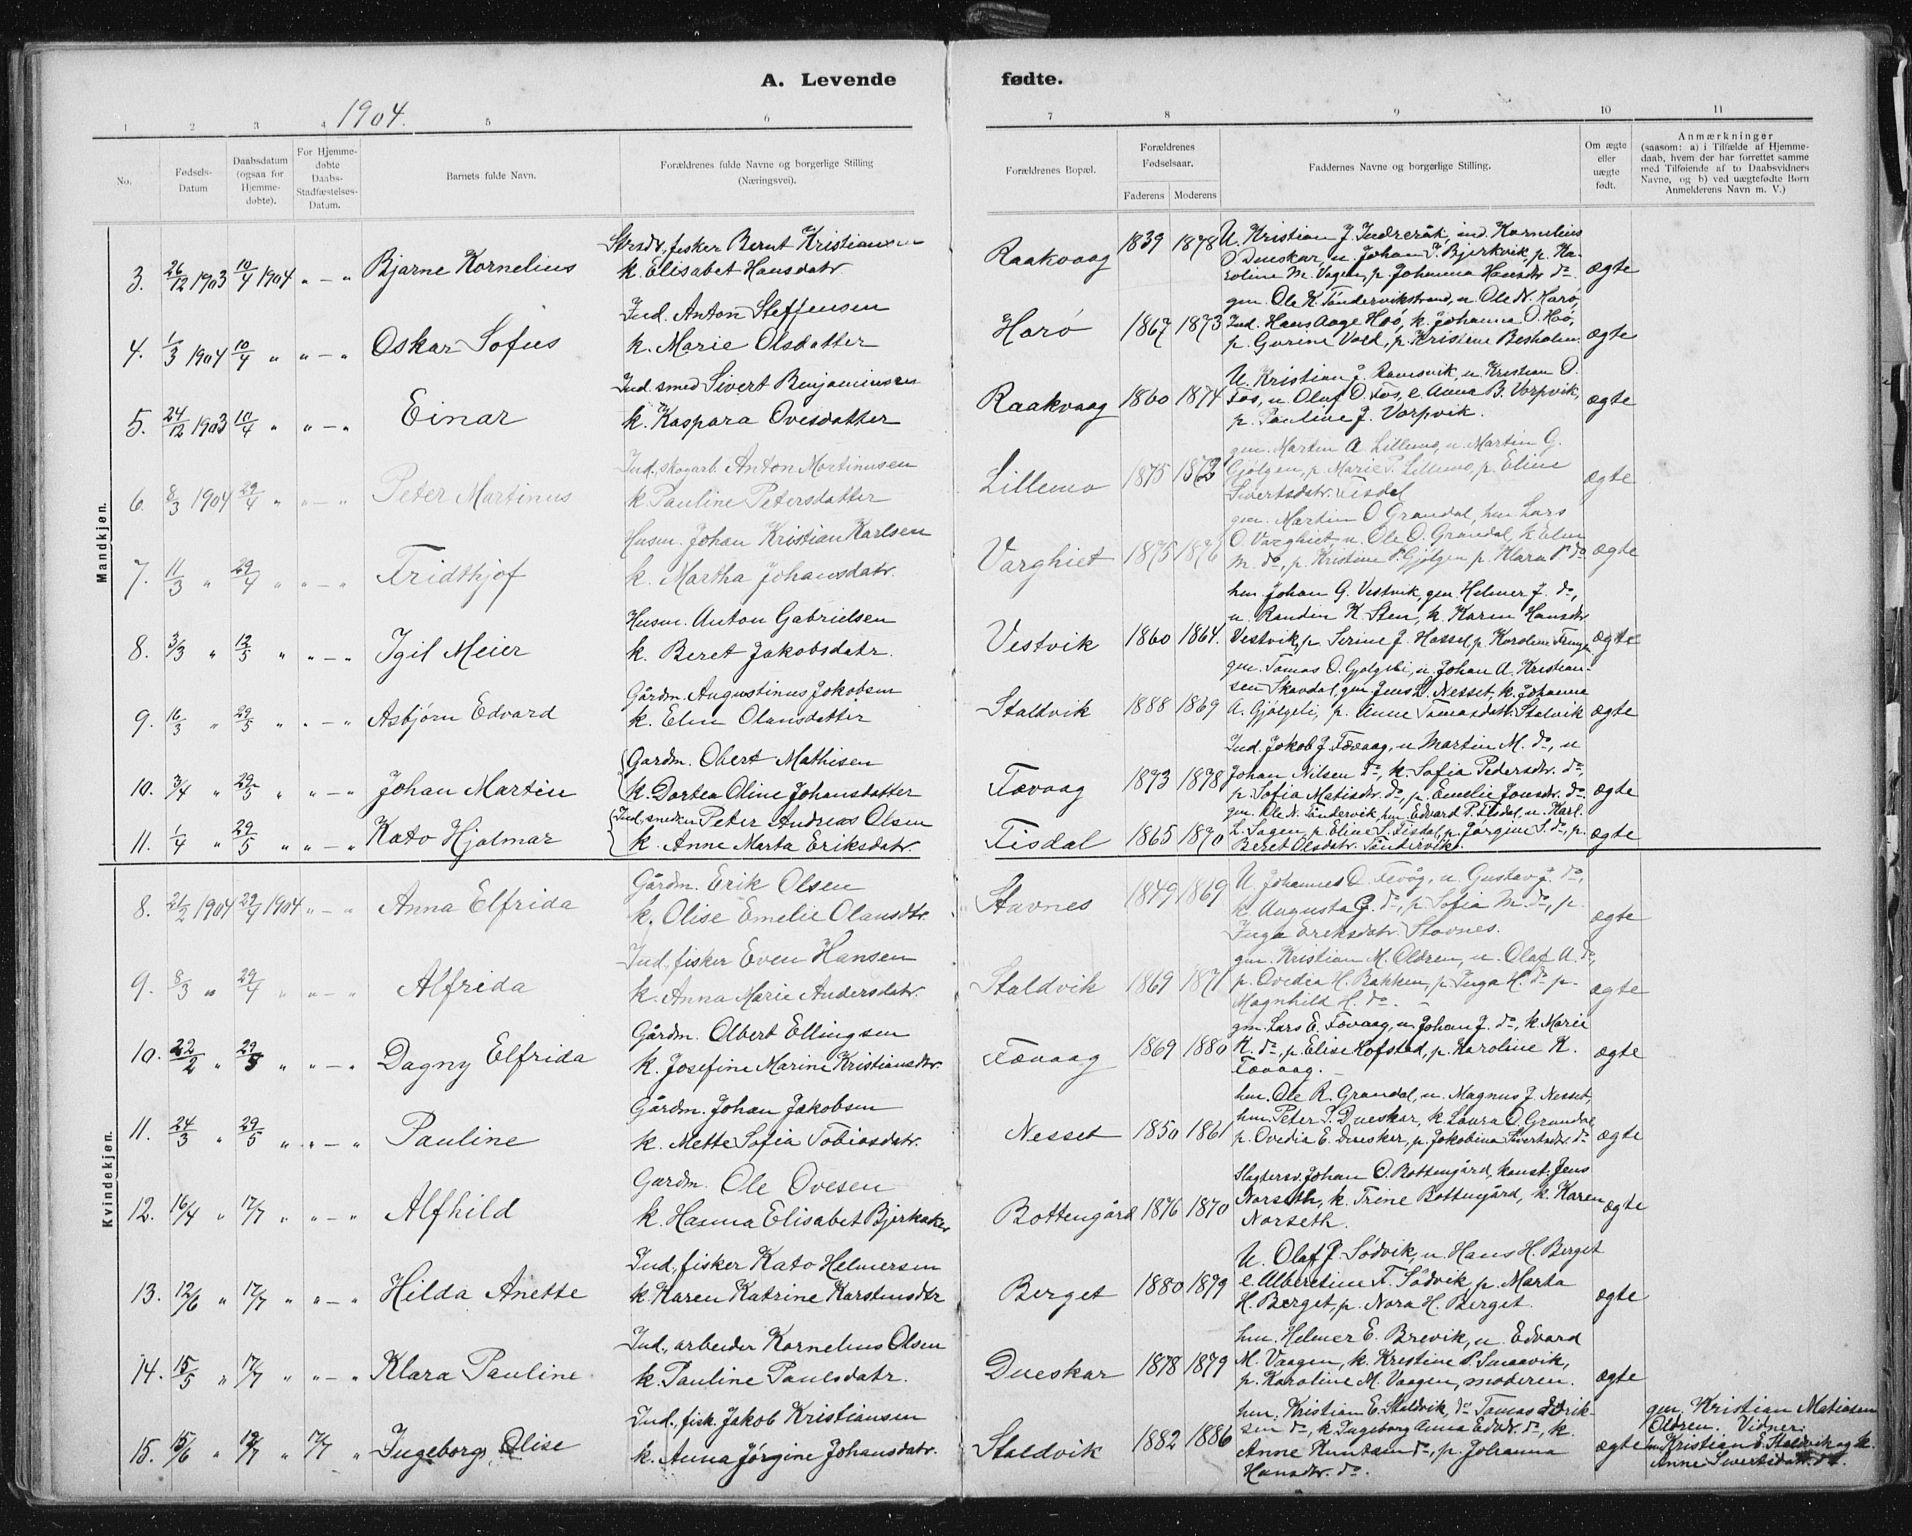 A. Levende fødte.
1904.
1 2 3 4 5 6 7 8 9 10 11
No.
Fødsels-Datum
Daabsdatum (ogsaa for Hjemmedøbte).
For Hjemmedøbte Daabs-Stadfæstelses-Datum.
Barnets fulde Navn.
Forældrenes fulde Navne og borgerlige Stilling (Næringsvei).
Forældrenes Bopæl.
Forældrenes Fødselsaar.
Faderens Moderens
Faddernes Navne og borgerlige Stilling.
Om ægte eller uægte født.
Anmærkninger
(saasom: a) i Tilfælde af Hjemmedaab, hvem der har forrettet samme med Tilføiende af to Daabsvidners Navne, og b) ved uægtefødte Børn Anmelderens Navn m. V.)
Mandkjøn.
3. 26/12 1903 10/4 1904 " — " Bjarne Kornelius
fisker Bernt Kristiansen
k. Elisabet Hansdatr.
Raakvaag 1839 1878
U. Kristian J. Indreråk, ind. Kornelius
O Dueskar, u. Johan J. Bjerkvik, p. Ka-
roline M. Vagen, p. Johanna Hansdr do
ægte
4. 1/3 1904 10/4 " " — " Oskar Sofus
Ind. Anton Steffensen
k. Marie Olsdatter
Harø 1867 1873
gm. Ole K. Tøndervikstrand, u Ole N. Harø,
Ind. Hans Aage Hoø, k. Johanna O. Hoø,
p. Gurine Vold, p. Kristine Besholm.
ægte
5. 24/12 1903 10/4 " " — " Einar
Ind. smed Sivert Benjaminsen
k. Kaspara Ovesdatter
Raakvaag 1860 1874
U. Kristian J. Ramsvik, u. Kristian O.
Fos, u. Olaf O. Fos, e. Anna B. Vorpvik,
p. Pauline J. Vorpvik.
ægte
6. 8/3 1904 24/4 " " — " Peter Martinus
Ind., skogarb. Anton Martinusen
k. Pauline Petersdatter
Lillemo 1875 1873
gm. Martin A. Lillemo, u. Martin G.
Gjølgen, p. Marie P. Lillemo, p. Eline
Sivertsdatr. Fisdal
ægte
7. 11/3 " 29/4 " " — " Fridthjof
Husm. Johan Kristian Karlsen
k. Martha Johansdatr.
Varghiet 1875 1876
gm. Martin O Grandal, hm. Lars
O. Varghiet u. Ole O. Grandal, k. Elen
M. do, p. Kristine P. Gjølgen p. Klara P. do
ægte
8. 3/3 " 12/5 " " — " Igil Meier
Husm. Anton Gabrielsen
k. Beret Jakobsdatr.
Vestvik 1860 1864.
hm Johan G. Vestvik, gm. Helmer J. do,
u. Randin K. Sten, k. Karen Hansdr
Vestvik, p. Serine J. Hassel, p. Karoline
ægte
9. 16/3 " 29/5 " " — " Asbjørn Edvard
Gårdm. Augustinus Jakobsen
k. Elen Olausdatter
Staldvik 1888 1869
gm. Tomas O. Gjølgeli, u Johan A. Kristian-
sen Skavdal, gm Jens L. Nesset, k. Johanne
A. Gjølgeli, p. Anne Tomasdatr. Stalvik
ægte
10. 3/4 " 29/5 " " — " Johan Martin
Gardm. Obert Mathisen
k. Dortea Oline Johansdatter
Fævaag 1873 1878
Ind. Jakob J. Fævaag, u Martin M. do, u
Johan Nilsen do, k. Sofia Pedersdr. do,
p. Sofia Matisdr. do, p. Emelie Jonsdr. do.
ægte
11. 1/4 " 29/5 " " — " Kato Hjalmar
Ind. snedker Peter Andreas Olsen
k. Anne Marta Eriksdatr.
Fisdal 1865 1870
gm. Ole N. Tøndervik, hm Edvard P. Fisdal, u. Karl
L. Sagen, p. Eline S. Fisdal, p. Jørgine S. do, p.
Beret Olsdatr. Tøndervik.
ægte
Kvindekjøn.
8. 21/2 1904 29/4 1904 " — " Anna Elfrida
Gårdm. Erik Olsen
k. Olise Emelie Olausdtr.
Stavnes 1849 1869
U. Johannes O. Fevåg, u. Gustav J. do,
k. Augusta J. do, p. Sofia M. do, p.
Inga Eriksdatr. Stavnes.
ægte
9. 8/3 " 29/4 " " — " Alfrida
Ind., fisker Even Hansen
k. Anna Marie Andersdatr.
Staldvik 1869 1871
gm. Kristian M. Oldren, u. Olaf A. do,
p. Ovedia H. Bakken, p. Inga H. do p.
Magnhild H. do. –
ægte
10. 22/2 " 29/5 " " — " Dagny Elfrida
Gårdm. Albert Ellingsen
k. Josefine Marine Kristiansdtr.
Fævaag 1869 1880
gm. Lars E. Fævaag, u. Johan J. do, k. Marie
K. do, p. Elise Kofstad, p. Karoline K.
Fævaag. –
ægte
11. 24/3 " 29/5 " " — " Pauline
Gårdm. Johan Jakobsen
k. Mette Sofia Tobiasdatr.
Nesset 1850 1861
hm. Ole R. Grandal, u. Magnus J. Nesset,
hm Peter P. Dueskar, k. Laura O. Grandal,
p. Ovedia E. Duesker, p. Jakobina Sivertsdr do
ægte
12. 16/4 " 17/7 " " — " Alfhild
Gardm. Ole Ovesen
k. Hanna Elisabet Bjerkaker
Bottengård 1876 1870
Slagtersv. Johan O. Bottengård, kaust. Jens
Norseth, k. Trine Bottengård, k. Karen
Norseth.
ægte
13. 12/6 " 17/7 " " — " Hilda Anette
Ind., fisker Kato Helmersen
k. Karen Katrine Karstensdtr
Berget 1880 1879
U. Olaf J. Sødvik, u. Hans H. Berget
e. Albertine F. Sødvik, p. Marta
H. Berget, p. Nora H. Berget.
ægte
14. 15/5 " 17/7 " " — " Klara Pauline
Ind., arbeider Kornelius Olsen
k. Pauline Paulsdatr.
Dueskar 1878 1879
hm. Helmer E. Brevik, u. Edvard
M. Vaagen, k. Kristine P. Smaavik,
p. Karoline M. Vaagen, moderen.
ægte
15. 15/6 " 17/7 " 17/7 " Ingeborg Olise
Ind., fisk. Jakob Kristiansen
k. Anna Jørgine Johansdatr.
Staldvik 1882 1886
hm. Kristian E. Staldvik, do Tomas Edrik-
sen do, k. Ingeborg Anna Edvdr. do, k.
Anne Knutsen do, p. Johanna
Hansdtr. do.
ægte
gm. Kristian Matiasen
Oldren. Vidner:
hm Kristian E. Staldvik og k.
Anne Sivertsdatr. do.